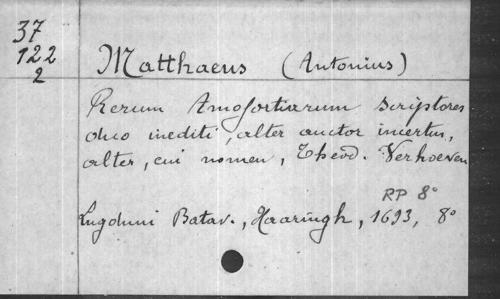 37
122
2
Matthaeus (Antonius)
Rerum Amofortiarum scriptores
duo inediti, alter auctor incertus,
alter, cui nomen, Theod. Verhoeven
RP 8°
Lugduni Batav., Haaringh, 1693, 8°